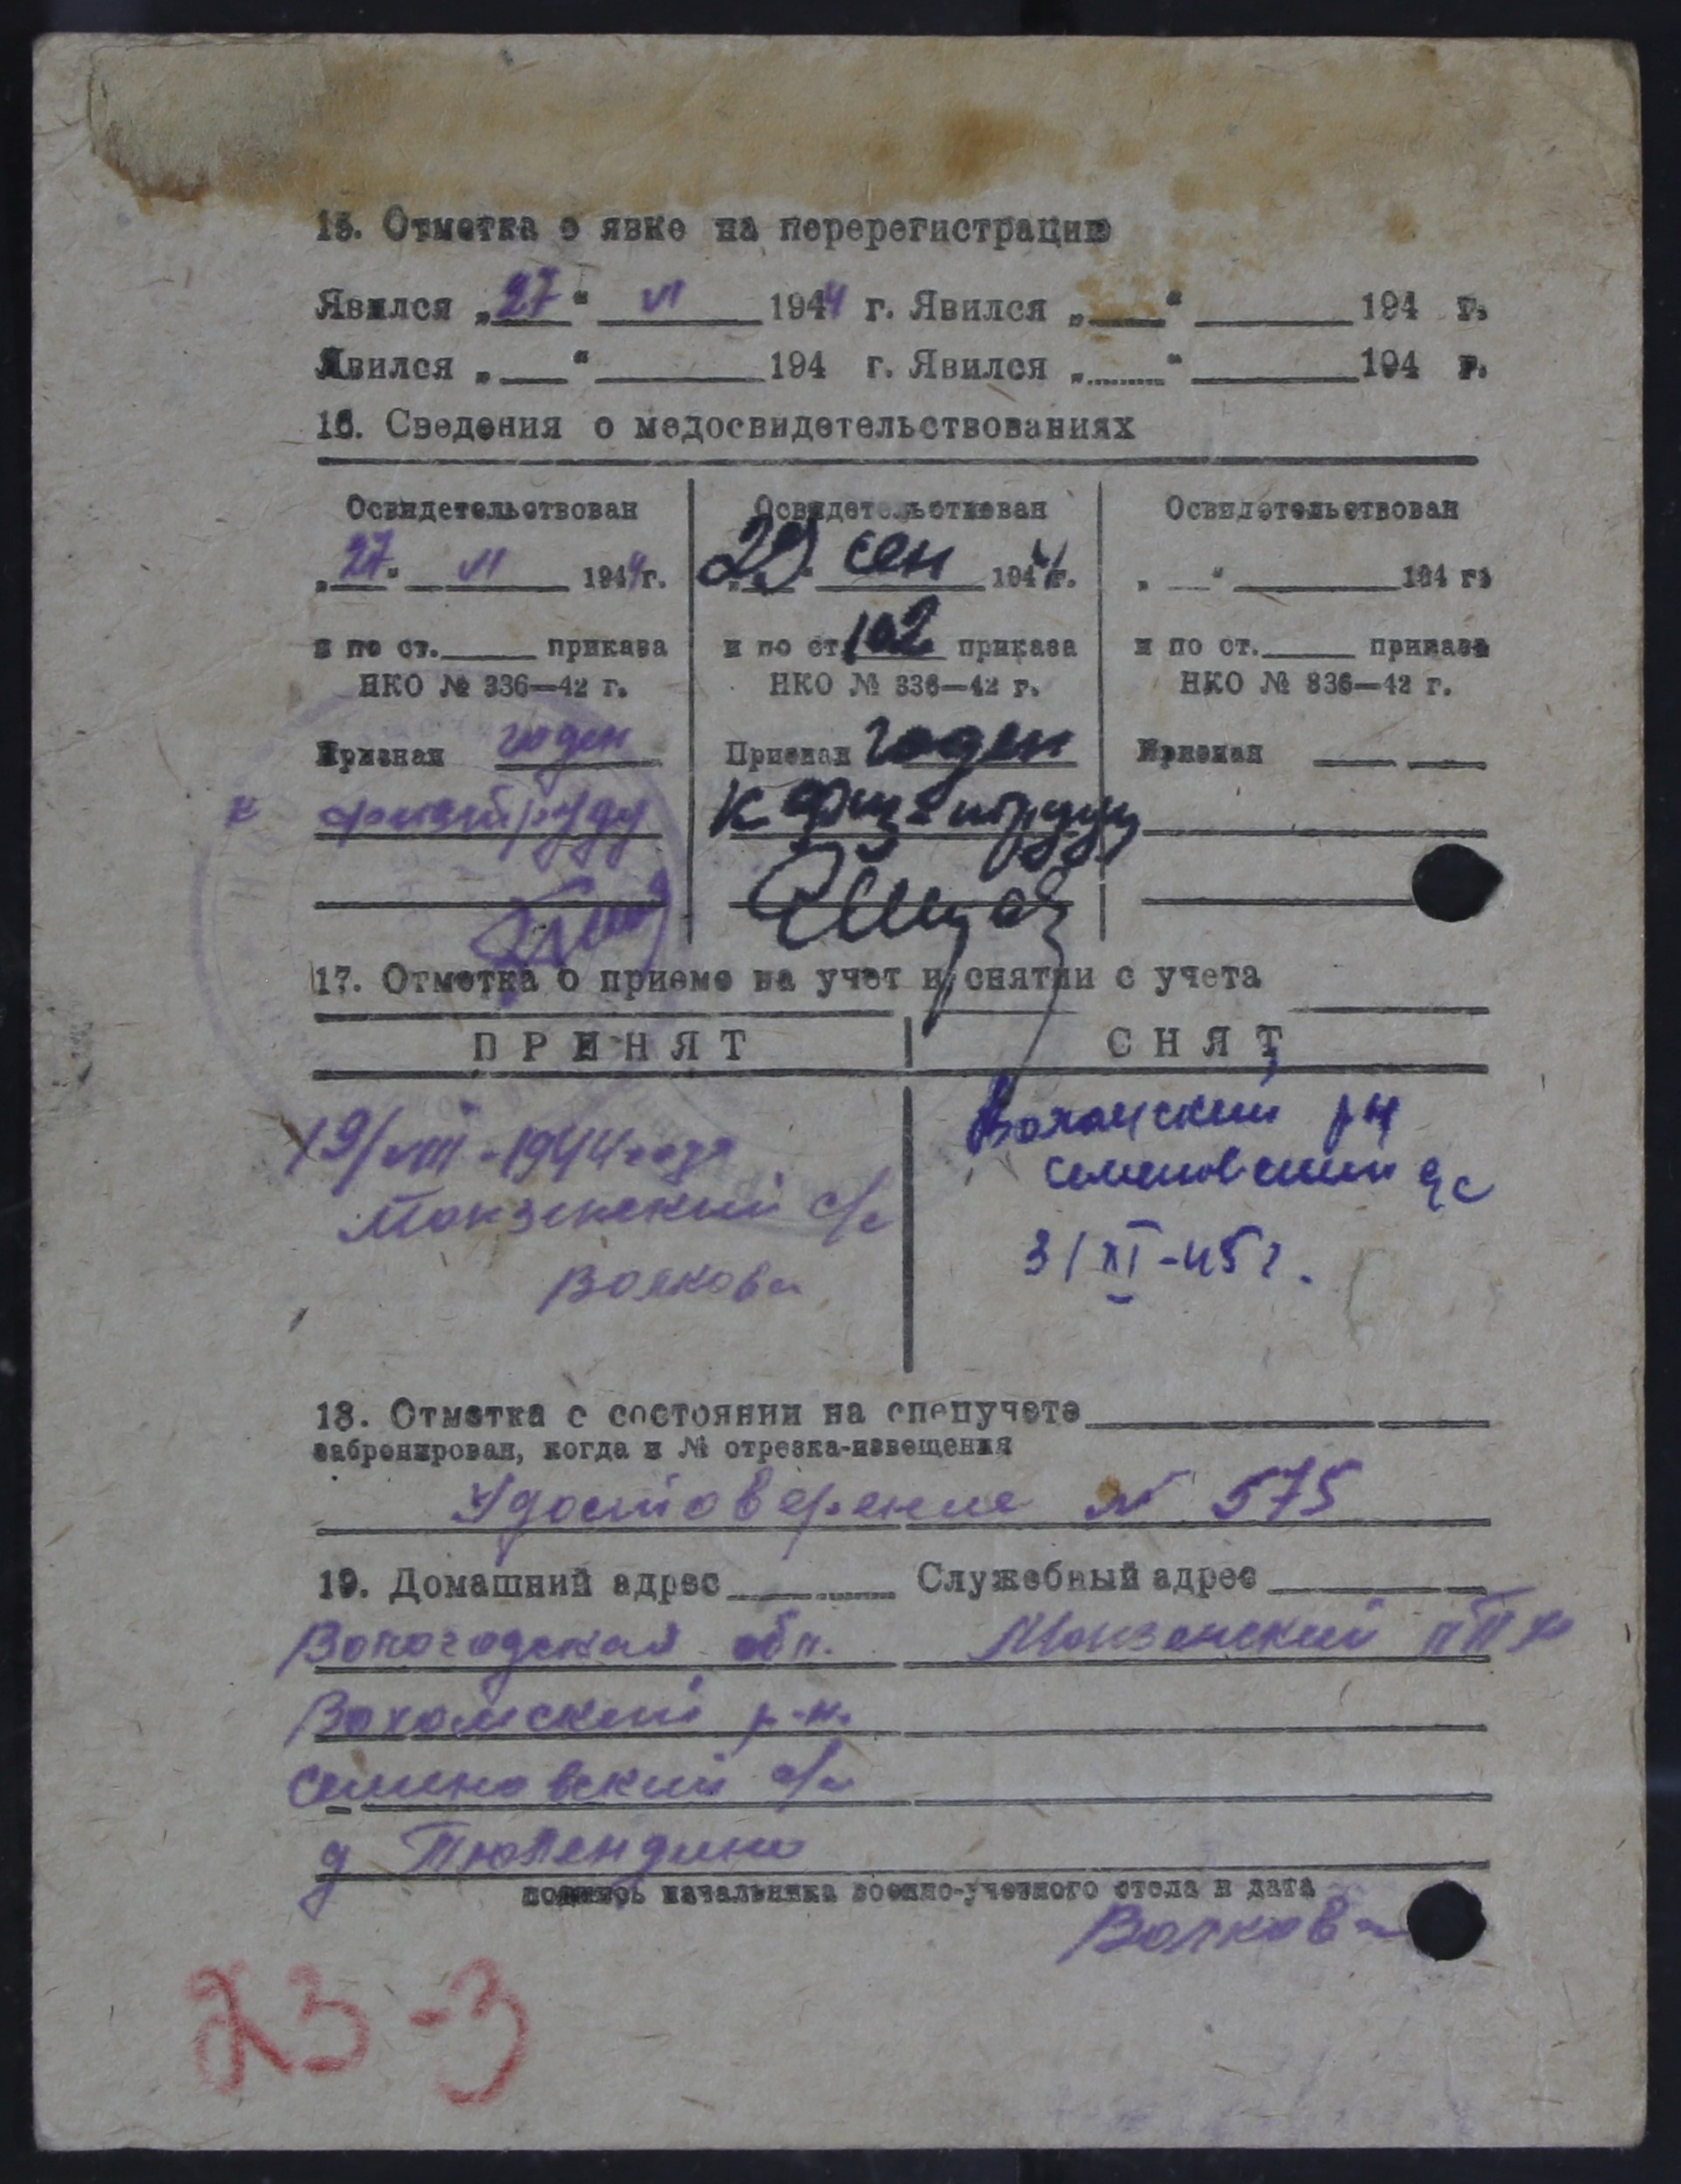 15. Отметка о явке на перерегистрацию
Явился „27“ VI 1944 г. Явился „___“ ______ 194 г.
Явился „___“ ______ 194 г. Явился „___“ ______ 194 г.
16. Сведения о медосвидетельствованиях
Освидетельствован
„27“ VI 1944г.
и по ст. ____ приказа
НКО № 336—42 г.
Признан годен
к физтруду
Освидетельствован
„29“ сен 1944г.
и по ст. 102 приказа
НКО № 336—42 г.
Признан годен
к физ-труду
Освидетельствован
„ “ ______ 194 г.
и по ст. ____ приказа
НКО № 336—42 г.
Признан
17. Отметка о приеме на учет и снятии с учета
ПРИНЯТ
19/VIII-1944 года
Монзенский с/с
Волкова
СНЯТ
Вохомский рн
Семеновский с/с
3/XI-45г.
18. Отметка о состоянии на спецучете
забронирован, когда и № отрезка-извещения
Удостоверение № 575
19. Домашний адрес ______ Служебный адрес ______
Вологодская обл. Монзенский
Вохомский р-н.
Семеновский с/с
д Тюлендино
подпись начальника военно-учетного стола и дата
Волкова
23-3